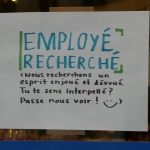 EMPLOYÉ
RECHERCHÉ
(Nous recherchons un
esprit enjoué et dévoué.
Tu te sens interpellé?
Passe nous voir! :)